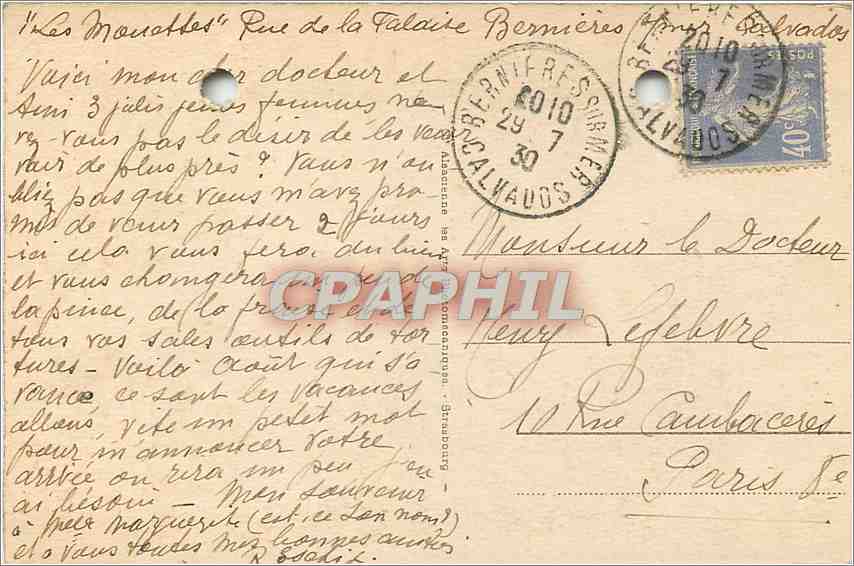 "Les Mouettes" Rue de la Falaise Bernières s/mer Calvados
Voici mon cher docteur et
Ami 3 jolis jeunes femmes n'a
vez-vous pas le désir de les venir
voir de plus près? Vous n'ou
bliez pas que vous m'avez pro
mis de venir passer 2 jours
ici cela vous fera du bien
et vous changera un peu de
la pince, de la fraise et de
tous vos sales outils de tor
tures - Voilà Août qui s'a
vance, ce sont les vacances
allons, vite un petit mot
pour m'annoncer votre
arrivée on rira un peu j'en
ai besoin - Mon souvenir
à Marguerite (est-ce son nom?)
et à vous toutes mes bonnes amitiés
BERNIERES SUR MER
2010
29 7
30
CALVADOS
BERNIERES SUR MER
2010
29 7
30
CALVADOS
POSTES
40c
Alsacienne les Arts Photomécaniques. - Strasbourg
CPAPHIL
Monsieur le Docteur
Henry Lefebvre
10 Rue Cambacérès
Paris 8e